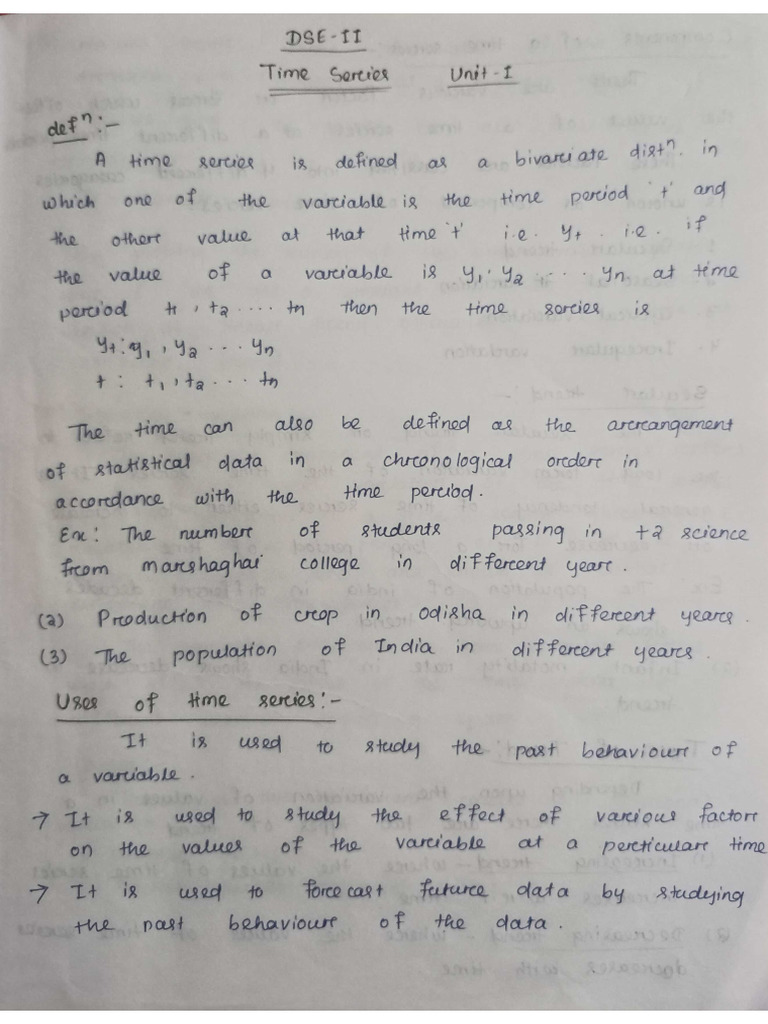 DSE-II
Time Series Unit-I
defⁿ:-
A time series is defined as a bivariate distⁿ. in
which one of the variable is the time period 't' and
the other value at that time 't' i.e. yt. i.e. if
the value of a variable is y₁, y₂ .... yn at time
period t₁, t₂ .... tn then the time series is
yt: y₁, y₂ ... yn
t : t₁, t₂ ... tn
The time can also be defined as the arrangement
of statistical data in a chronological order in
accordance with the time period.
Ex: The number of students passing in +2 science
from marshaghai college in different year.
(2) Production of crop in Odisha in different years.
(3) The population of India in different years.
Uses of time series:-
It is used to study the past behaviour of
a variable.
→ It is used to study the effect of various factors
on the values of the variable at a perticular time
→ It is used to forecast future data by studying
the past behaviour of the data.